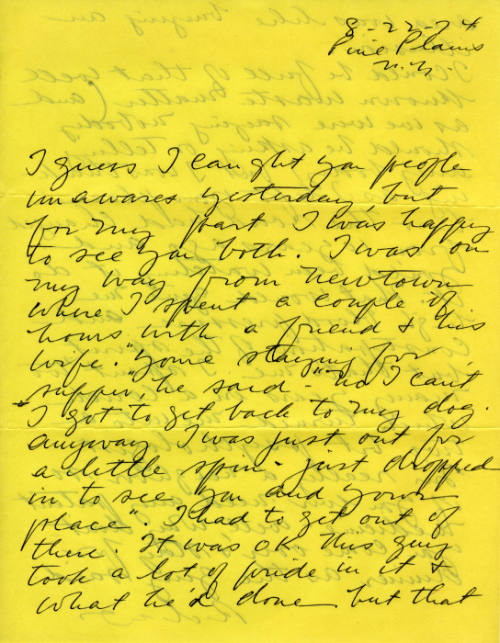 8-22-74
Pine Plains
N.Y.
I guess I caught you people
unawares yesterday, but
for my part I was happy
to see you both. I was on
my way from Newtown
where I spent a couple of
hours with a friend & his
wife. "You're staying for
supper", he said - "no I can't
I got to get back to my dog.
anyway I was just out for
a little spin - just dropped
in to see you and your
place". I had to get out of
there. It was ok this guy
took a lot of pride in it &
what he'd done but that